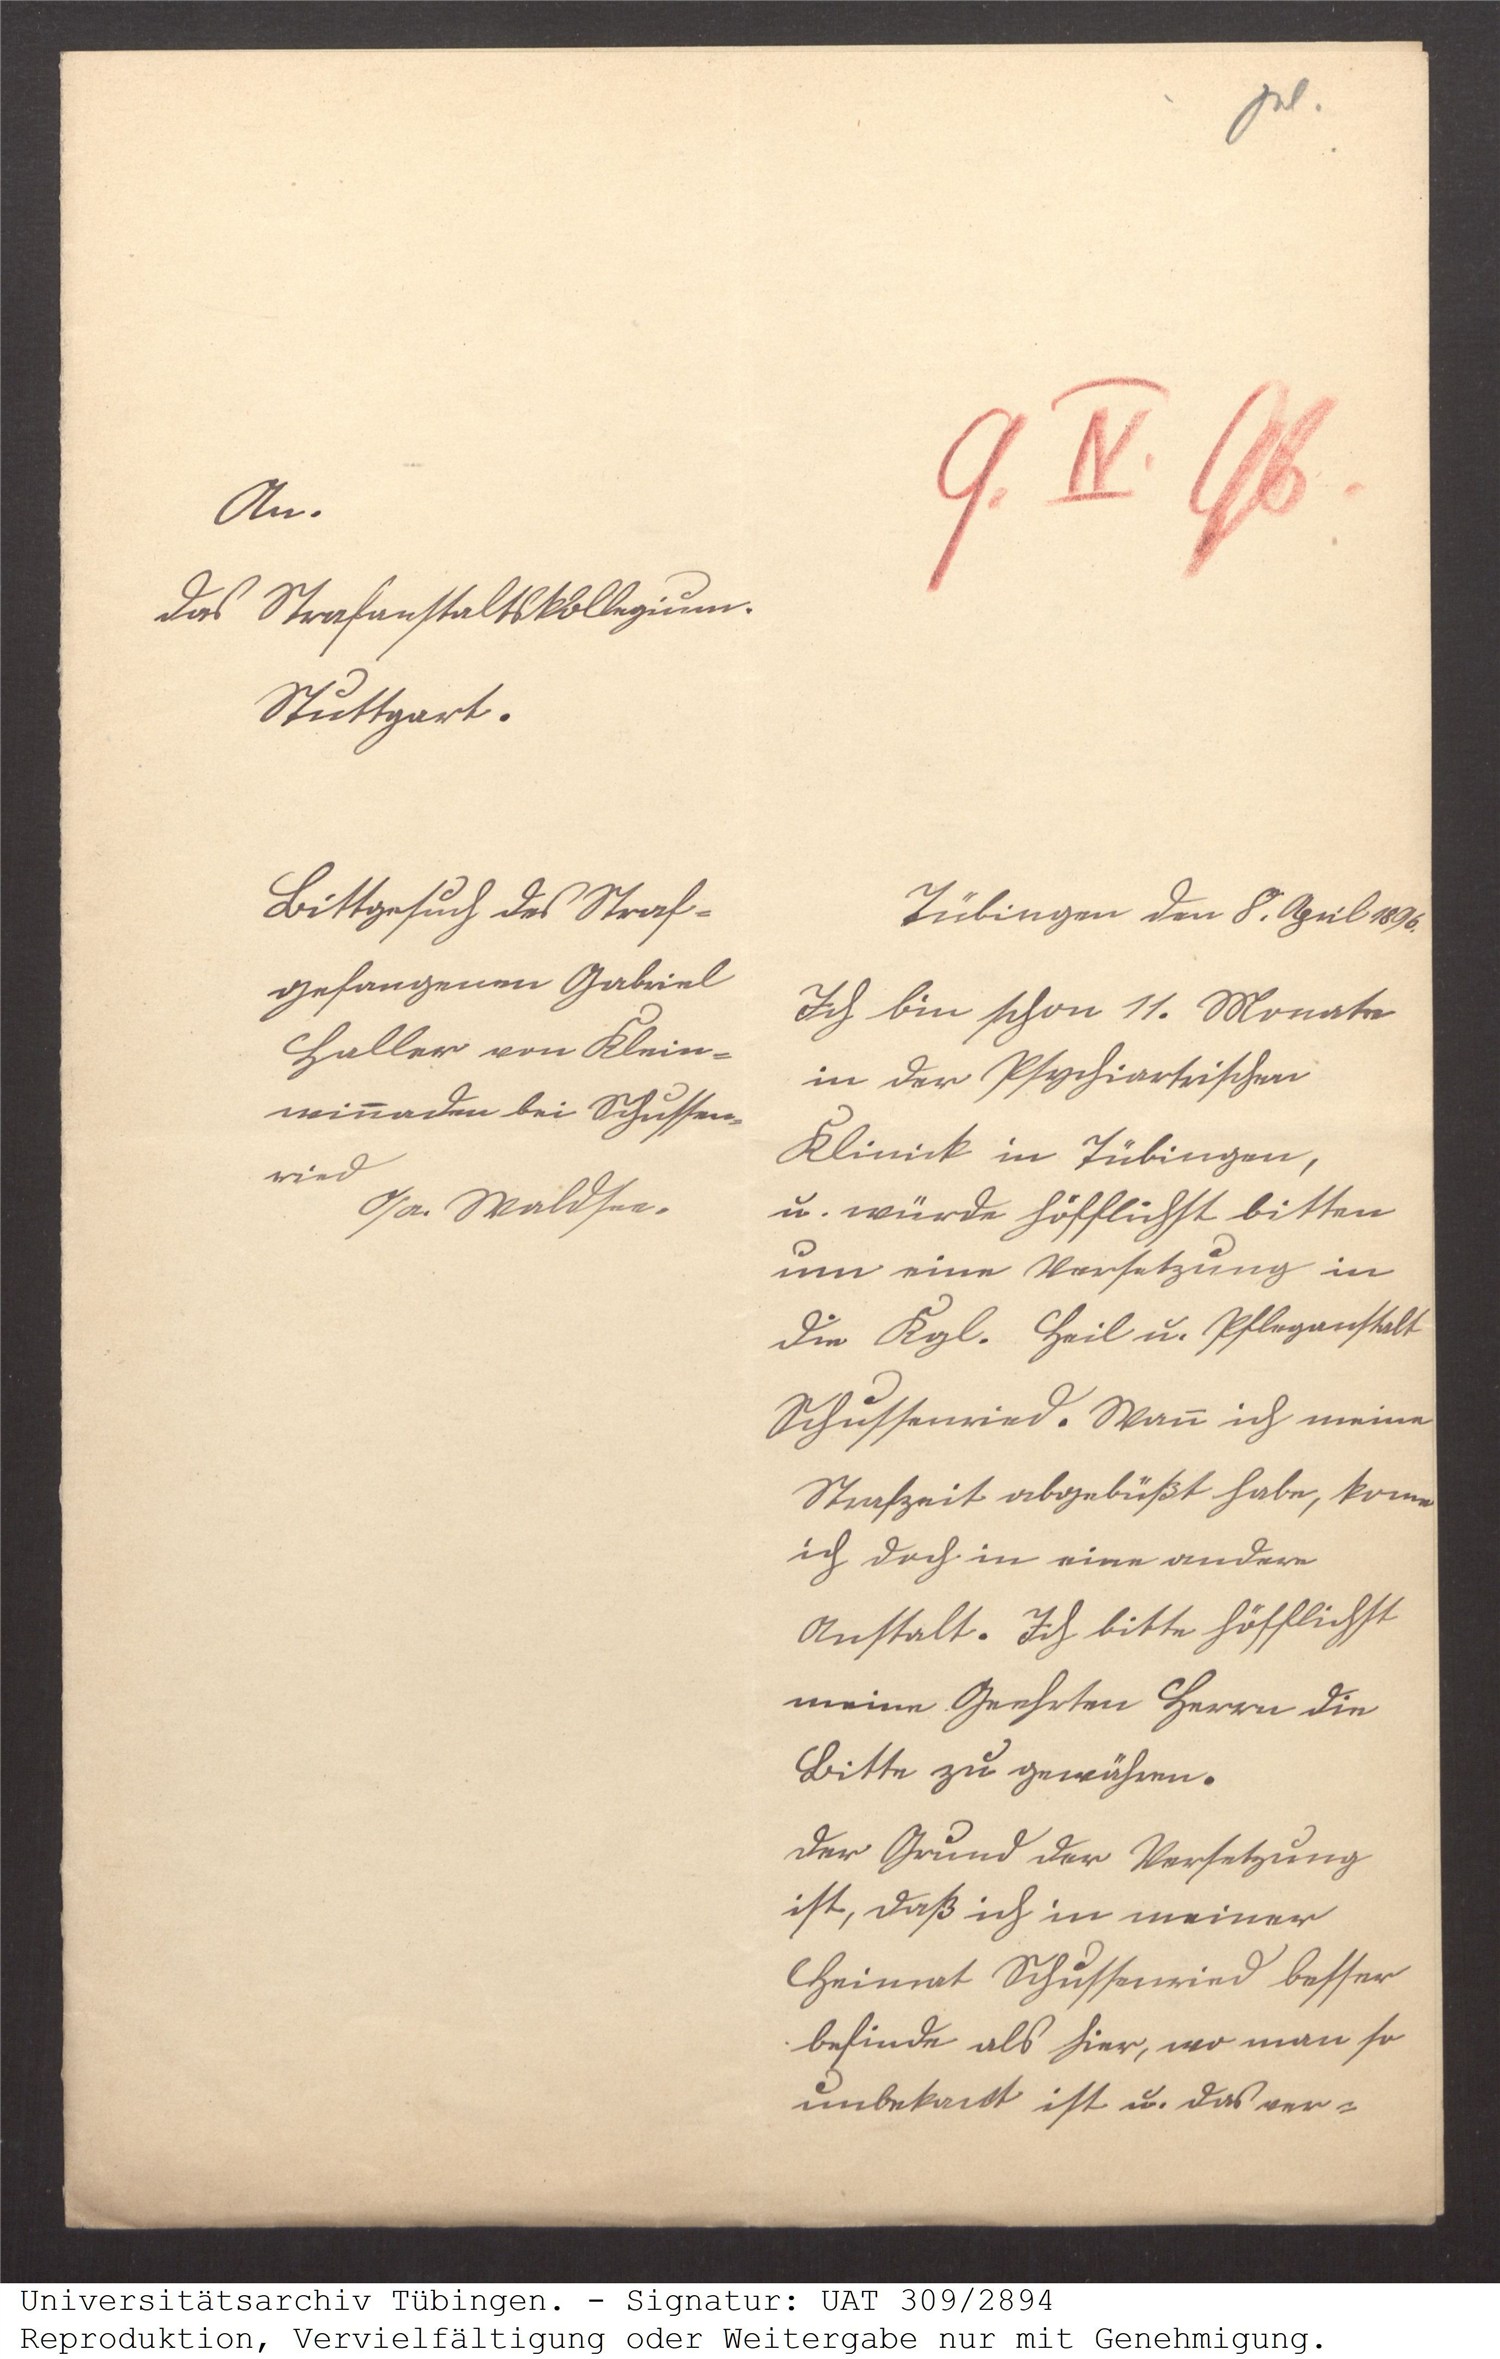 9. IV. 96.
An.
das Strafanstaltskollegium.
Stuttgart.
Bittgesuch des Straf-
gefangenen Gabriel
Haller von Klein-
win̄aden bei Schussen-
ried
O/A. Waldsee.
Tübingen den 8. April 1896.
Ich bin schon 11. Monate
in der Psychiartrischen
Klinick in Tübingen,
u. würde höfflichst bitten
um eine Versetzung in
die Kgl. Heil u. Pfleganstalt
Schussenried. Wan̄ ich meine
Strafzeit abgebüßt habe, kome
ich doch in eine andere
Anstalt. Ich bitte höfflichst
meine Geehrten Herrn die
Bitte zu gewähren.
der Grund der Versetzung
ist, daß ich in meiner
Heimat Schussenried besser
befinde als hier, wo man so
unbekan̄t ist u. das ver-
Universitätsarchiv Tübingen. - Signatur: UAT 309/2894
Reproduktion, Vervielfältigung oder Weitergabe nur mit Genehmigung.